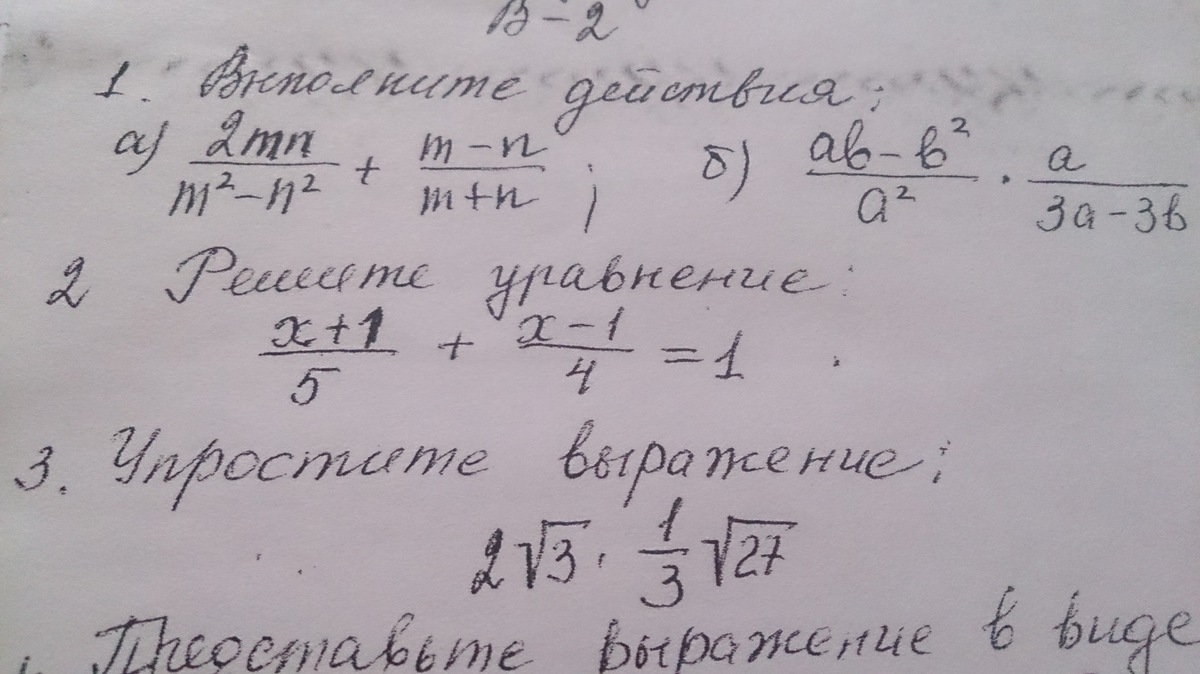 В-2
1. Выполните действия:
а) 2mn/(m²-n²) + (m-n)/(m+n); б) (ab-b²)/a² · a/(3a-3b)
2 Решите уравнение:
(x+1)/5 + (x-1)/4 = 1
3. Упростите выражение:
2√3 · 1/3 √27
Представьте выражение в виде